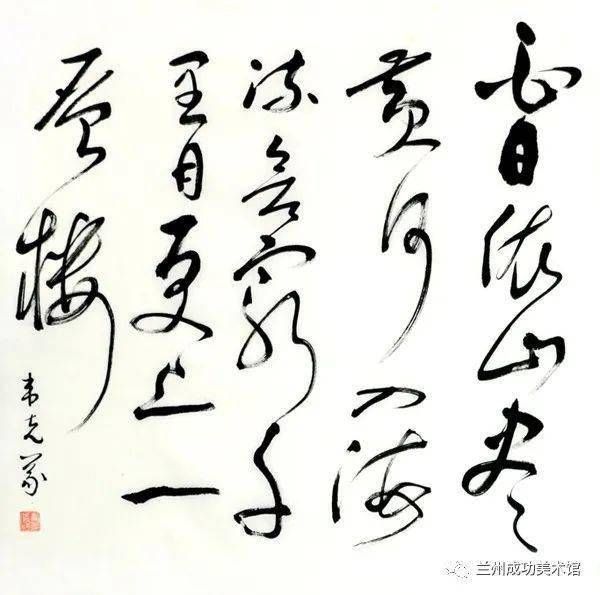 白日依山尽
黄河入海
流欲穷千
里目更上一
层楼
韦克义
兰州成功美术馆